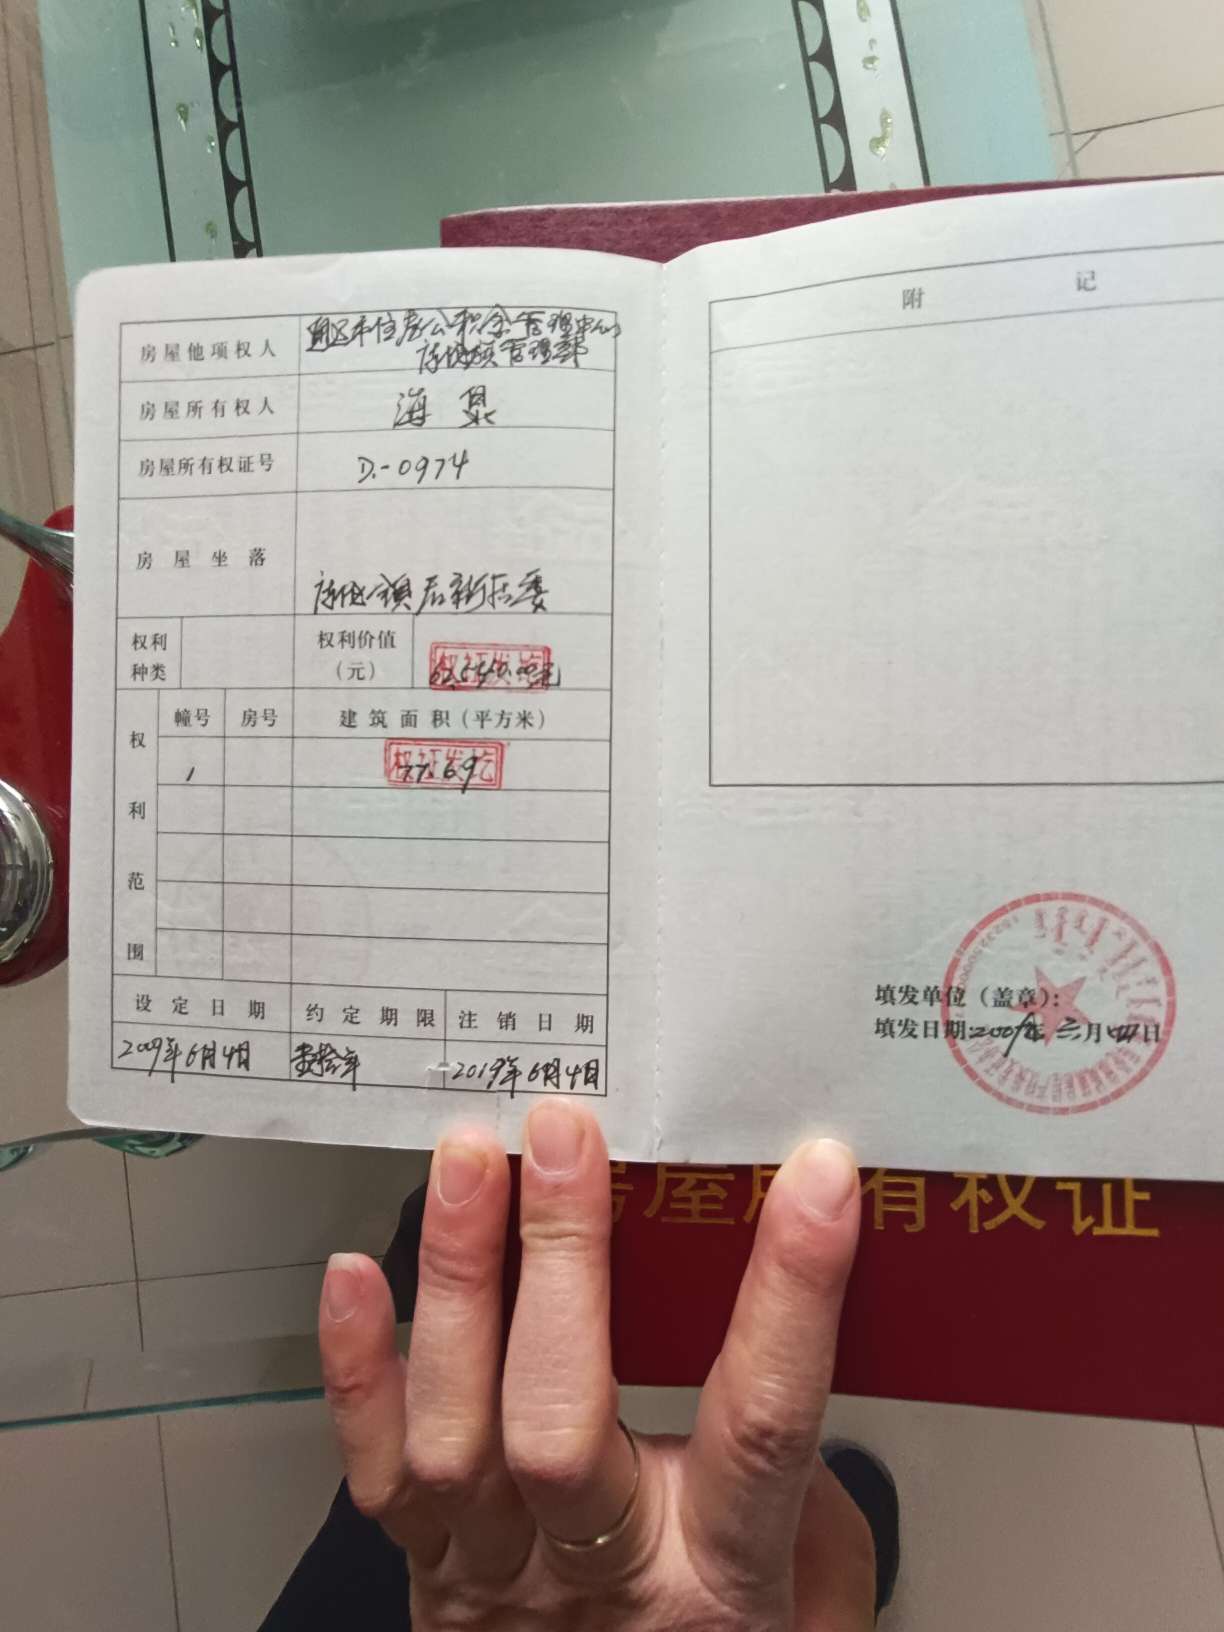 房屋他项权人
市住房公积金管理中心
镇管理部
房屋所有权人 海泉
房屋所有权证号 D.-0974
房屋坐落
镇 居委
权利种类
权利价值（元）
权 利 范 围
幢号 房号 建筑面积（平方米）
1 77.69
权证发讫
设定日期 约定期限 注销日期
2009年6月4日 壹拾年 2019年6月4日
附 记
填发单位（盖章）：
填发日期:2009年 六月四日
房屋所有权证